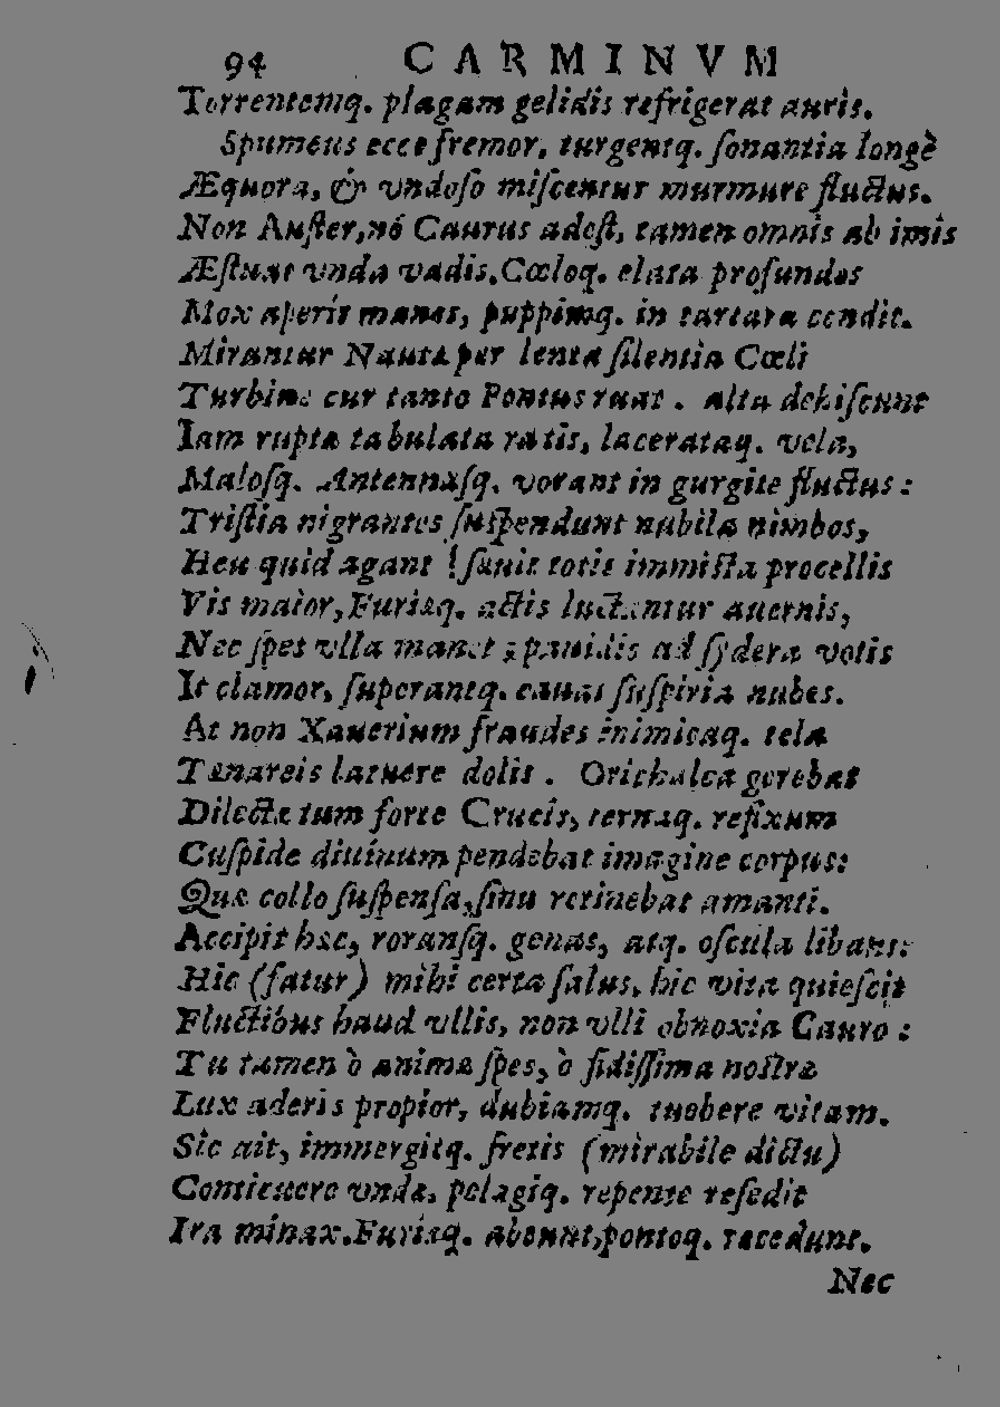 94 CARMINVM
Torrentemq. plagam gelidis refrigerat auris.
Spumeus ecce fremor, turgentq. ſonantia longè
Æquora, & vndoſo miſcentur murmure fluctus.
Non Auſter, nõ Caurus adeſt, tamen omnis ab imis
Æſtuat vnda vadis. Cœloq. elata profundos
Mox aperit manes, puppimq. in tartara condit.
Mirantur Nautæ per lenta ſilentia Cœli
Turbine cur tanto Pontus ruat. alta dehiſcunt
Iam rupta tabulata ratis, lacerataq. vela,
Maloſq. Antennaſq. vorant in gurgite fluctus:
Triſtia nigrantes ſuſpendunt nubila nimbos,
Heu quid agant! ſæuit totis immiſſa procellis
Vis maior, Furiæq. actis luctantur auernis,
Nec ſpes vlla manet; pauidis ad ſydera votis
It clamor, ſuperantq. cauas ſuſpiria nubes.
At non Xauerium fraudes inimicaq. tela
Tænareis latuere dolis. Orichalca gerebat
Dilectæ tum forte Crucis, ternaq. refixum
Cuſpide diuinum pendebat imagine corpus:
Quæ collo ſuſpenſa, ſinu retinebat amanti.
Accipit hæc, roranſq. genas, atq. oſcula libans:
Hic (fatur) mihi certa ſalus, hic vita quieſcit
Fluctibus haud vllis, non vlli obnoxia Cauro:
Tu tamen ò animæ ſpes, ò fidiſſima noſtræ
Lux aderis propior, dubiamq. tuebere vitam.
Sic ait, immergitq. fretis (mirabile dictu)
Conticuere vndæ, pelagiq. repente reſedit
Ira minax. Furiæq. abeunt, pontoq. recedunt.
Nec